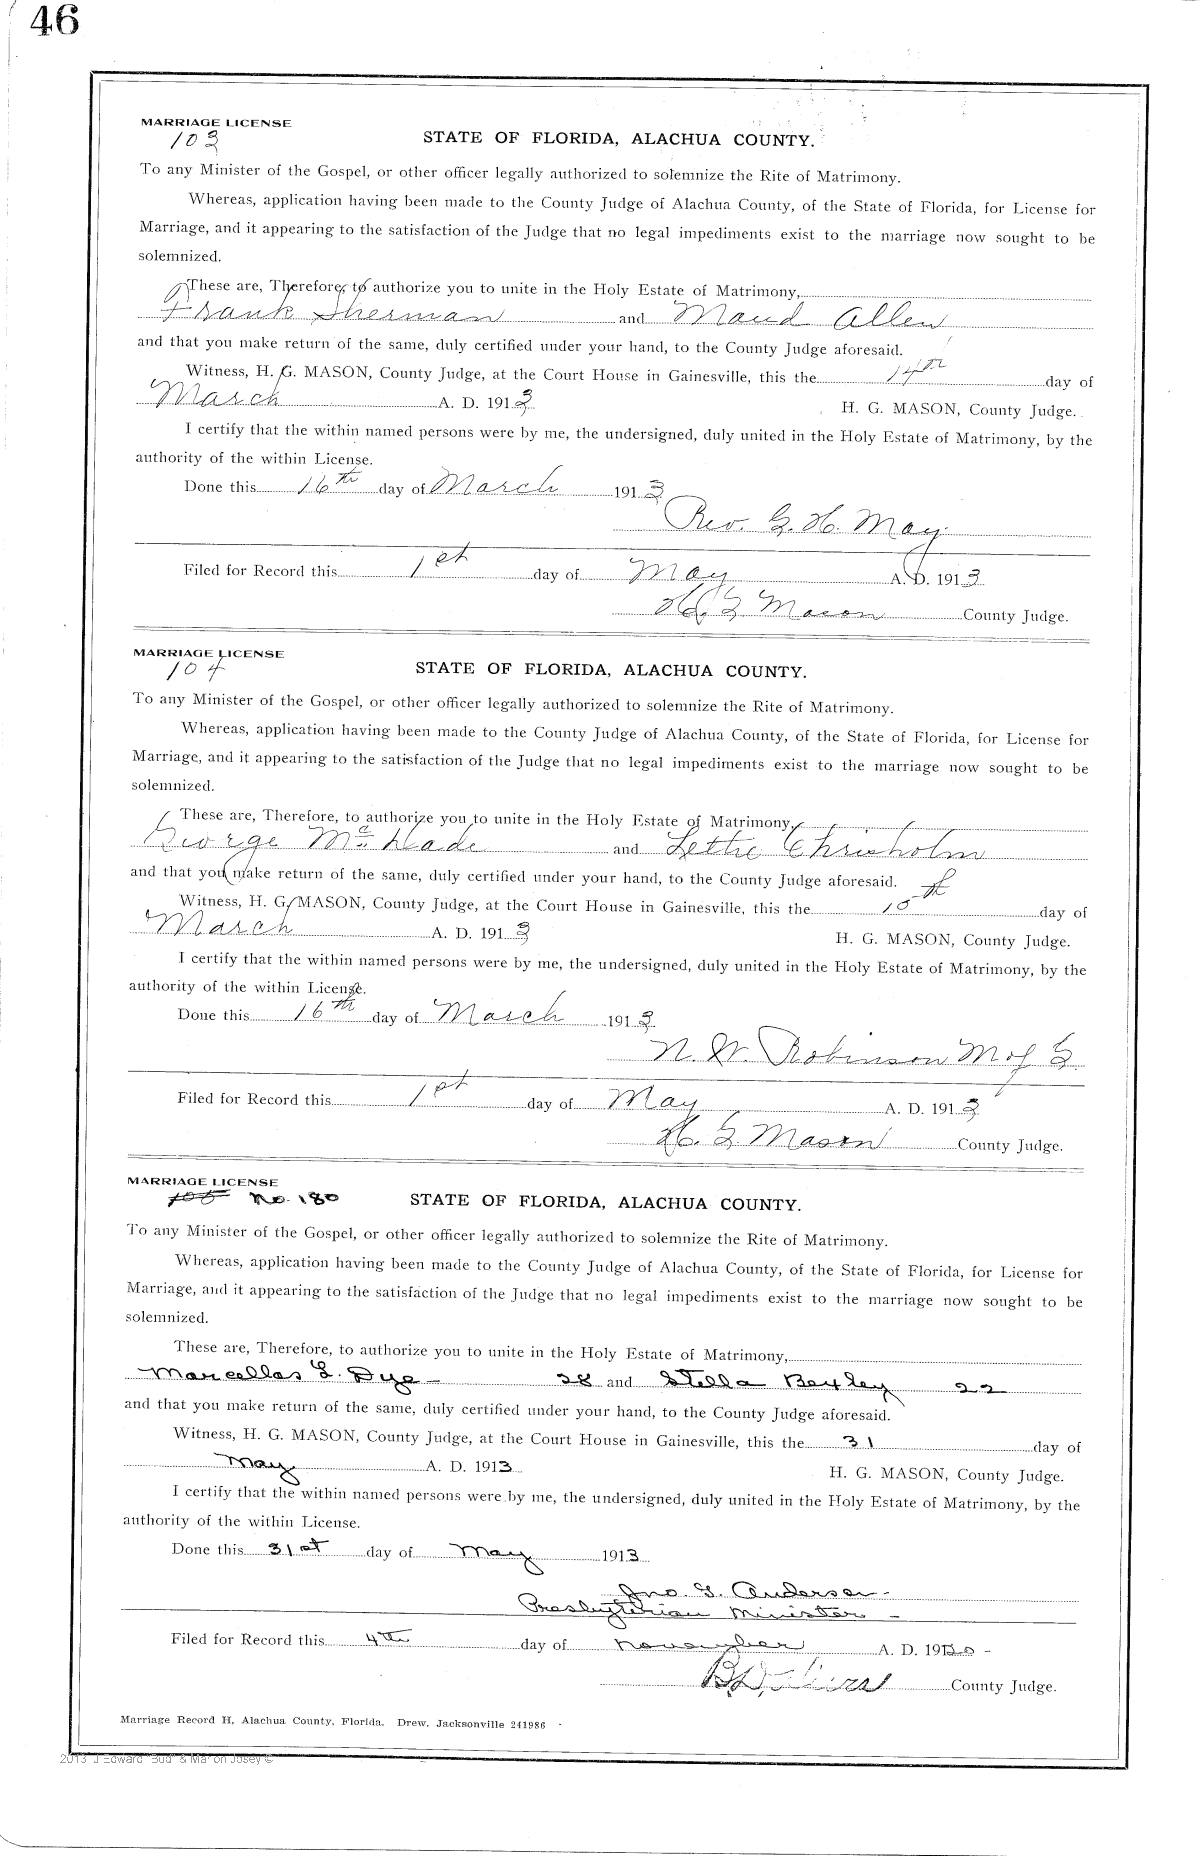 46
MARRIAGE LICENSE
103
STATE OF FLORIDA, ALACHUA COUNTY.
To any Minister of the Gospel, or other officer legally authorized to solemnize the Rite of Matrimony.
Whereas, application having been made to the County Judge of Alachua County, of the State of Florida, for License for
Marriage, and it appearing to the satisfaction of the Judge that no legal impediments exist to the marriage now sought to be
solemnized.
These are, Therefore, to authorize you to unite in the Holy Estate of Matrimony,
Frank Sherman and Maud Allen
and that you make return of the same, duly certified under your hand, to the County Judge aforesaid.
Witness, H. G. MASON, County Judge, at the Court House in Gainesville, this the 14th day of
March A. D. 1913 H. G. MASON, County Judge.
I certify that the within named persons were by me, the undersigned, duly united in the Holy Estate of Matrimony, by the
authority of the within License.
Done this 16th day of March 1913
Rev. G. H. May
Filed for Record this 1st day of May A. D. 1913
H. G Mason County Judge.
MARRIAGE LICENSE
104
STATE OF FLORIDA, ALACHUA COUNTY.
To any Minister of the Gospel, or other officer legally authorized to solemnize the Rite of Matrimony.
Whereas, application having been made to the County Judge of Alachua County, of the State of Florida, for License for
Marriage, and it appearing to the satisfaction of the Judge that no legal impediments exist to the marriage now sought to be
solemnized.
These are, Therefore, to authorize you to unite in the Holy Estate of Matrimony,
George McDade and Lettie Chrisholm
and that you make return of the same, duly certified under your hand, to the County Judge aforesaid.
Witness, H. G. MASON, County Judge, at the Court House in Gainesville, this the 15th day of
March A. D. 1913 H. G. MASON, County Judge.
I certify that the within named persons were by me, the undersigned, duly united in the Holy Estate of Matrimony, by the
authority of the within License.
Done this 16th day of March 1913
N. W. Robinson M of G
Filed for Record this 1st day of May A. D. 1913
H. G Mason County Judge.
MARRIAGE LICENSE
105 No. 180
STATE OF FLORIDA, ALACHUA COUNTY.
To any Minister of the Gospel, or other officer legally authorized to solemnize the Rite of Matrimony.
Whereas, application having been made to the County Judge of Alachua County, of the State of Florida, for License for
Marriage, and it appearing to the satisfaction of the Judge that no legal impediments exist to the marriage now sought to be
solemnized.
These are, Therefore, to authorize you to unite in the Holy Estate of Matrimony,
Marcellas G. Dye - 28 and Stella Bexley 22
and that you make return of the same, duly certified under your hand, to the County Judge aforesaid.
Witness, H. G. MASON, County Judge, at the Court House in Gainesville, this the 31 day of
May A. D. 1913 H. G. MASON, County Judge.
I certify that the within named persons were by me, the undersigned, duly united in the Holy Estate of Matrimony, by the
authority of the within License.
Done this 31st day of May 1913
Jno. G. Anderson -
Presbyterian Minister -
Filed for Record this 4th day of November A. D. 19
County Judge.
Marriage Record H, Alachua County, Florida. Drew, Jacksonville 241986
2013 J Edward "Bud" & Marion Josey ©